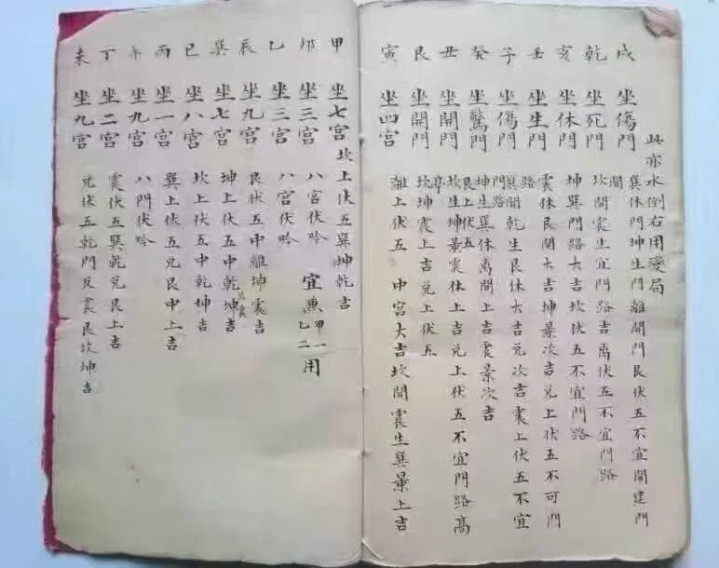 此亦水倒右用变局
戌 坐傷門 巽休門坤生門離開門艮伏五不宜開建門
乾 坐死門 坎開震生宜門路吉離伏五不宜門路
亥 坐休門 坤巽門路大吉坎伏五不宜門路
壬 坐生門 震休艮開大吉坤景次吉兑上伏五不可門路
子 坐傷門 巽開乾生艮休大吉兑次吉震上伏五不宜門路
癸 坐驚門 坤生巽休離開上吉震景次吉艮上伏五
丑 坐開門 坎生坤景震休上吉兑上伏五不宜門路高
艮 坐開門 坎坤震上吉兑上伏五
寅 坐四宫 離上伏五 中宫大吉坎開震生巽景上吉
甲 坐七宫 坎上伏五巽坤乾吉
卯 坐三宫 八宫伏吟 宜兼甲一乙二用
乙 坐三宫 八宫伏吟
辰 坐九宫 艮伏五中離坤震吉
巽 坐七宫 坤上伏五中乾坤吉
巳 坐八宫 坎上伏五中乾坤吉
丙 坐一宫 巽上伏五兑艮中上吉
午 坐九宫 八門伏吟
丁 坐二宫 震伏五巽乾兑艮上吉
未 坐九宫 兑伏五乾門反震艮坎坤吉